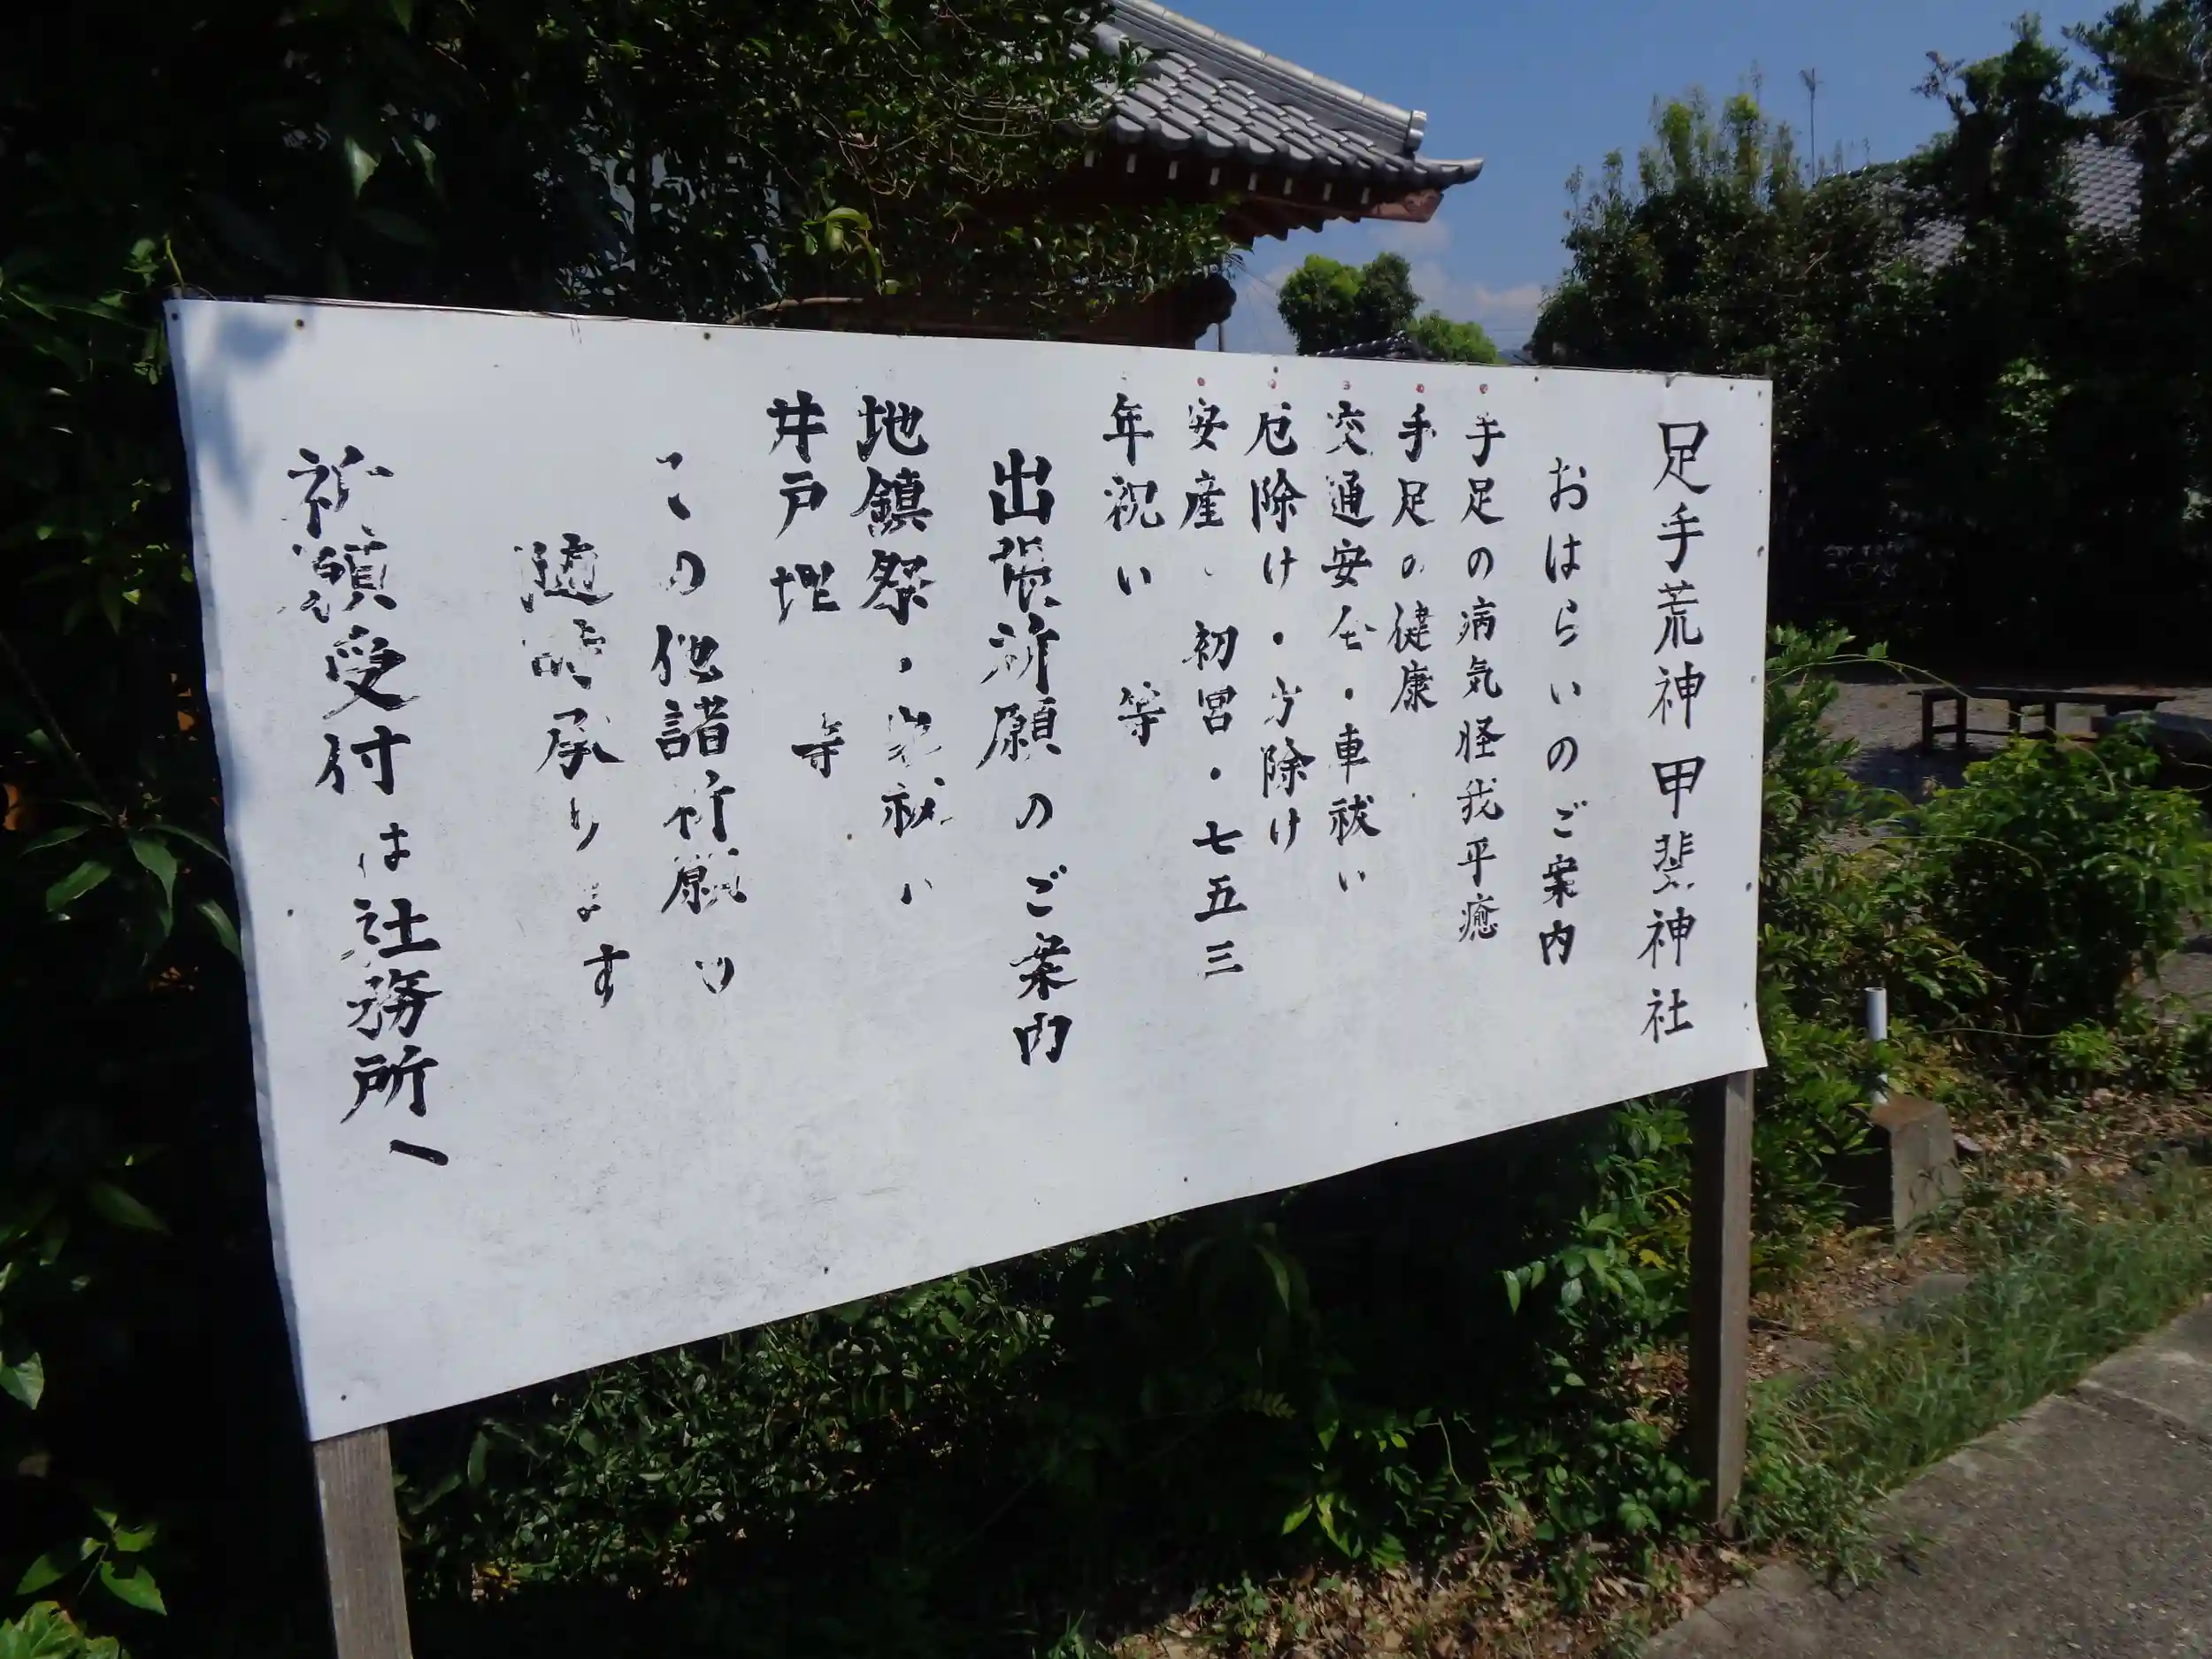 足手荒神甲斐神社
おはらいのご案内
手足の病気怪我平癒
手足の健康
交通安全・車祓い
厄除け・方除け
安産、初宮・七五三
年祝い 等
出張祈願のご案内
地鎮祭・家祓い
井戸埋 等
この他諸祈願も
随時承ります
祈願受付は社務所へ